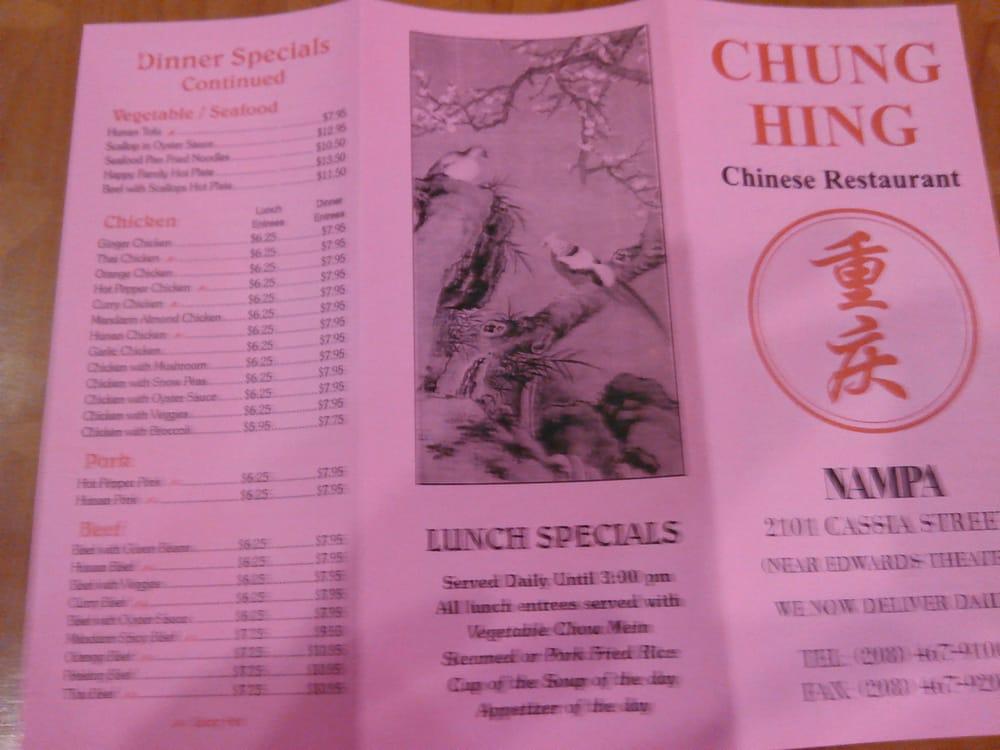 Dinner Specials
Continued
Vegetable / Seafood
Hunan Tofu $7.95
Scallop in Oyster Sauce $12.95
Seafood Pan Fried Noodles $10.50
Happy Family Hot Plate $13.50
Beef with Scallops Hot Plate $11.50
Chicken
Lunch Entrees
Dinner Entrees
Ginger Chicken $6.25 $7.95
Thai Chicken $6.25 $7.95
Orange Chicken $6.25 $7.95
Hot Pepper Chicken $6.25 $7.95
Curry Chicken $6.25 $7.95
Mandarin Almond Chicken $6.25 $7.95
Hunan Chicken $6.25 $7.95
Garlic Chicken $6.25 $7.95
Chicken with Mushroom $6.25 $7.95
Chicken with Snow Peas $6.25 $7.95
Chicken with Oyster Sauce $6.25 $7.95
Chicken with Veggies $6.25 $7.95
Chicken with Broccoli $5.95 $7.75
Pork
Hot Pepper Pork $6.25 $7.95
Hunan Pork $6.25 $7.95
Beef
Beef with Green Beans $6.25 $7.95
Hunan Beef $6.25 $7.95
Beef with Veggies $6.25 $7.95
Curry Beef $6.25 $7.95
Beef with Oyster Sauce $6.25 $7.95
Mandarin Spicy Beef $7.25
Orange Beef $7.25 $10.95
Beef $7.25 $10.95
Thai Beef $7.25 $10.95
LUNCH SPECIALS
Served Daily Until 3:00 pm
All lunch entrees served with
Vegetable Chow Mein
Steamed or Pork Fried Rice
Cup of the Soup of the day
Appetizer of the day
CHUNG
HING
Chinese Restaurant
重
庆
NAMPA
2101 CASSIA STREE
(NEAR EDWARDS THEATE
WE NOW DELIVER DAI
TEL (208) 467-9100
FAX (208) 467-920